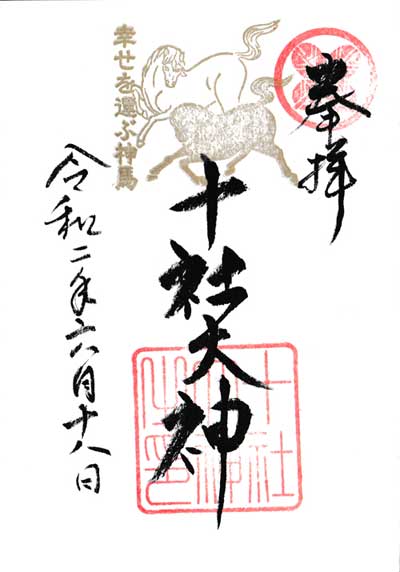 奉拝
十社大神
幸せを運ぶ神馬
令和二年六月十八日
十社
大神
之印